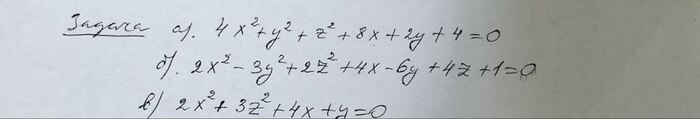 Задача а). 4x²+y²+z²+8x+2y+4=0
б). 2x²-3y²+2z²+4x-6y+4z+1=0
в) 2x²+3z²+4x+y=0